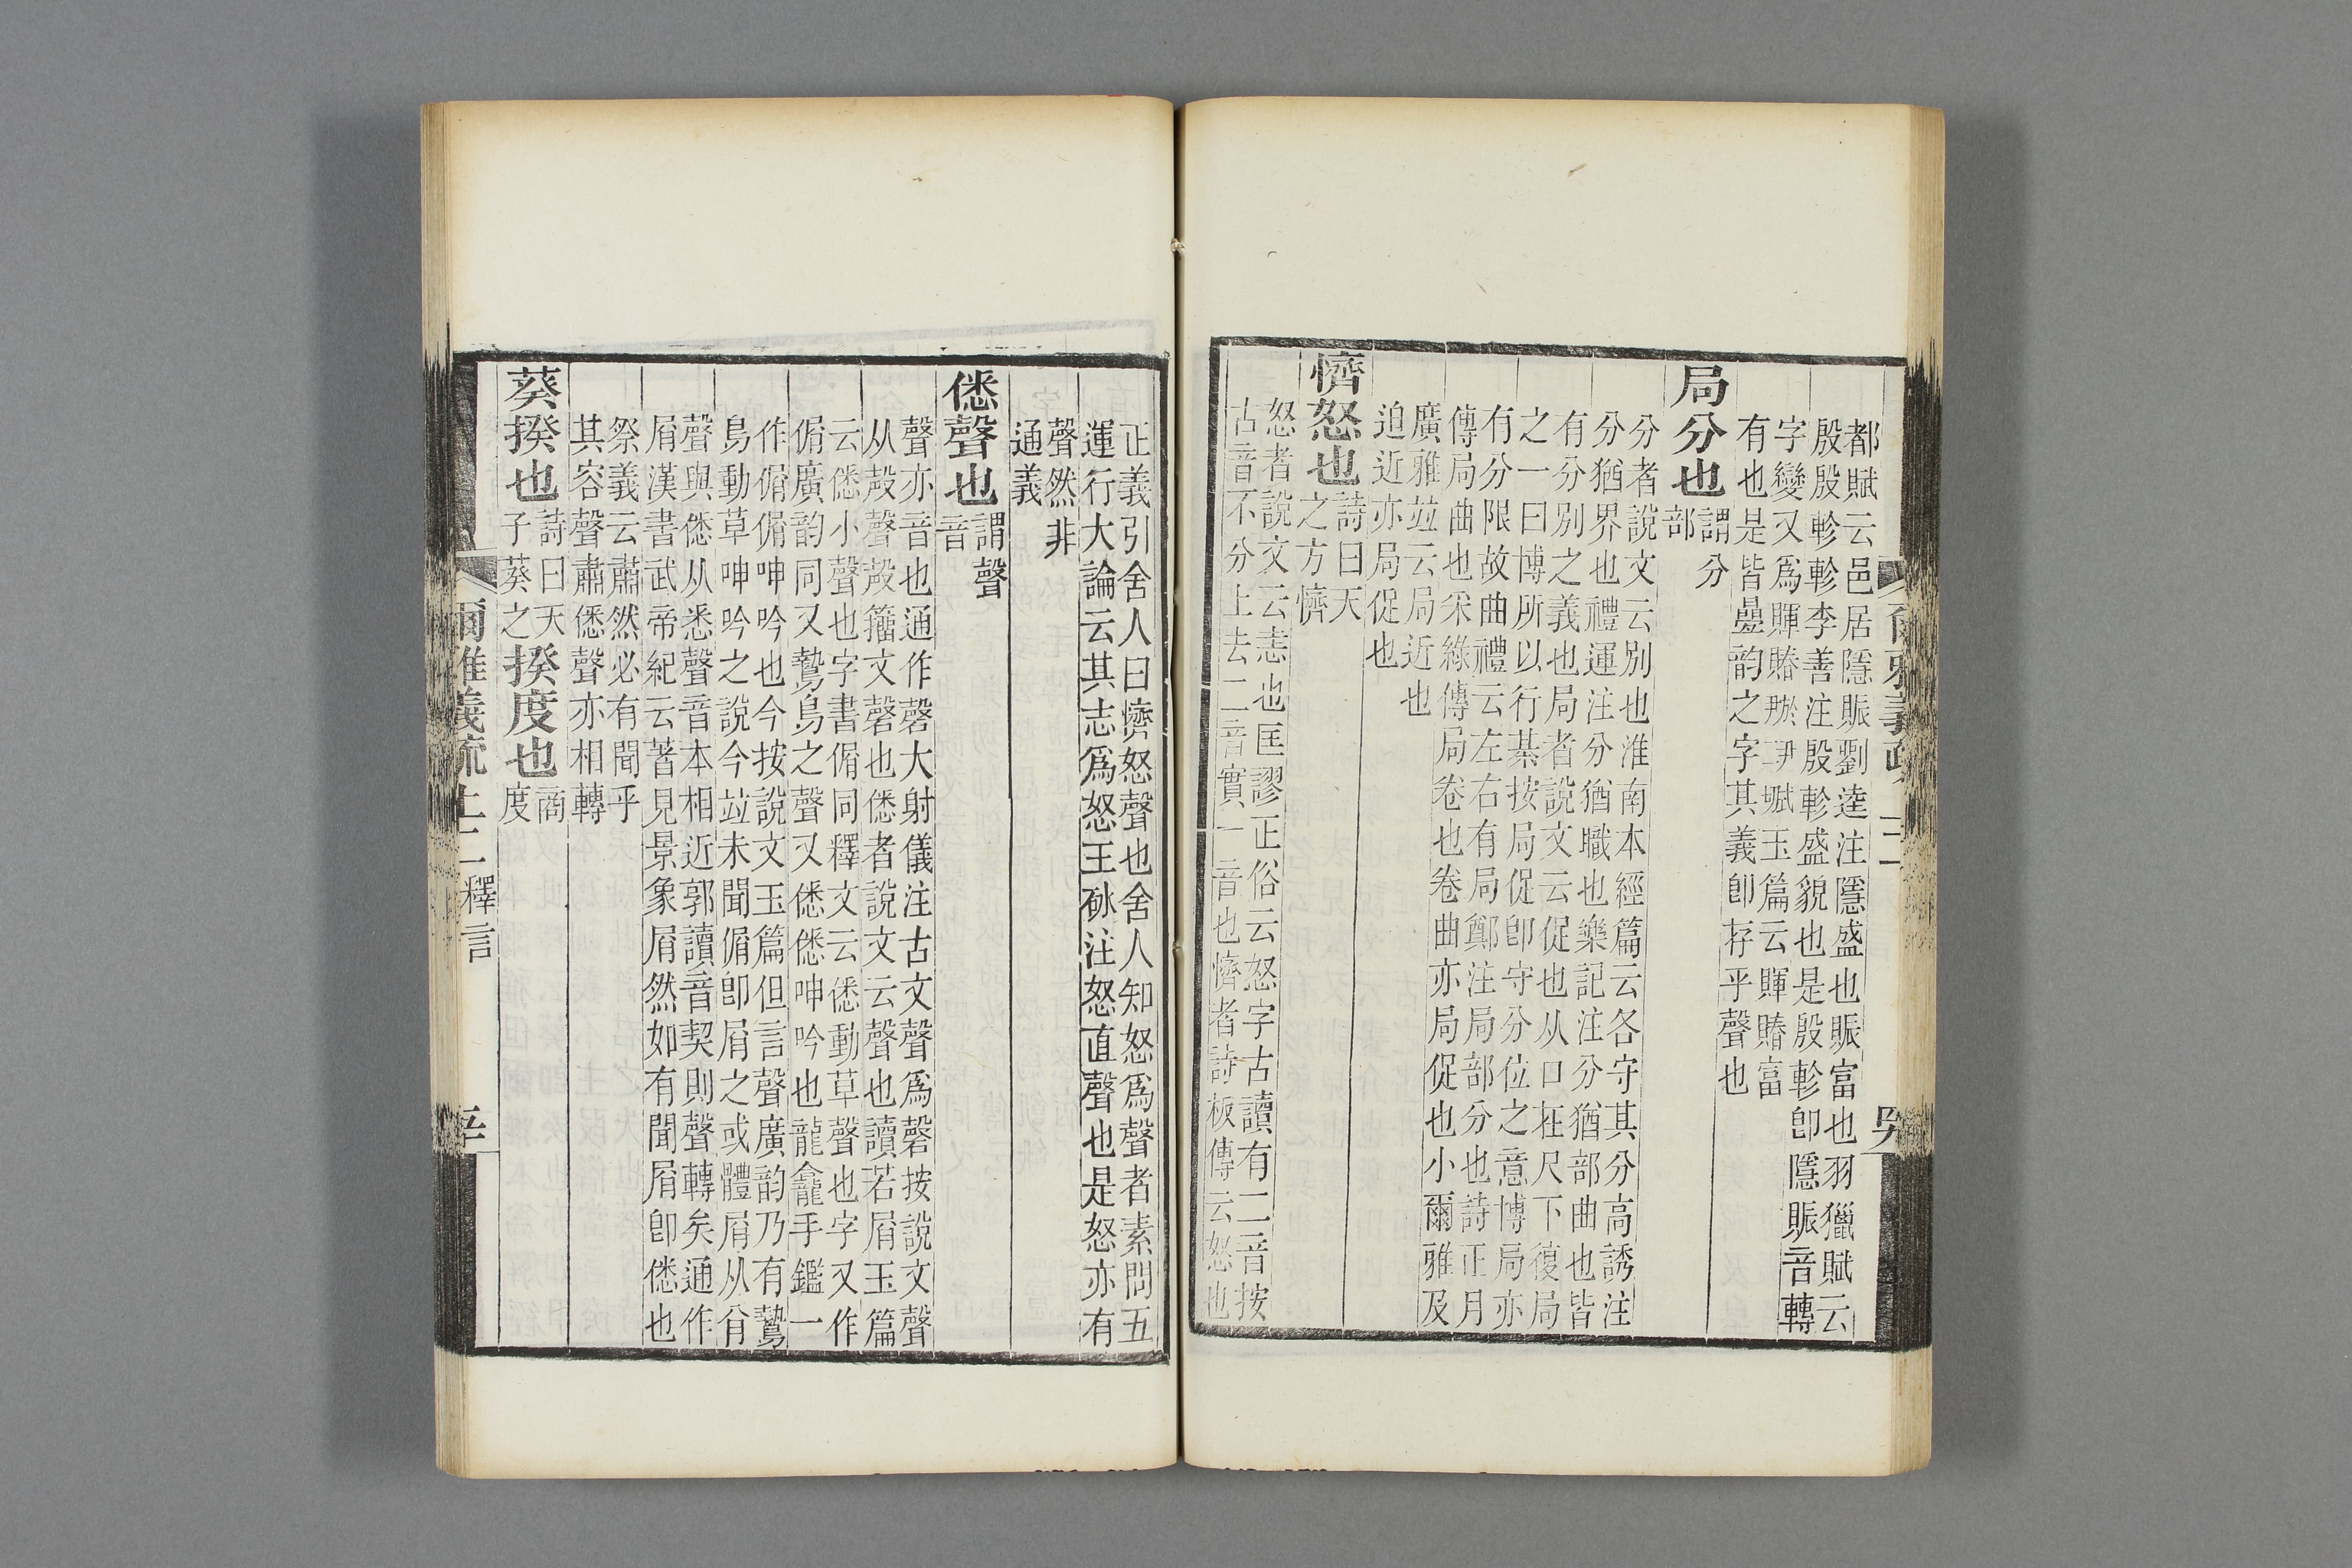 都賦云邑居隱賑劉逵注隱盛也賑富也羽獵賦云
殷殷軫軫李善注殷軫盛貌也是殷軫卽隱賑音轉
字變又爲賱賰 玉篇云賱賰富
有也是皆疊韵之字其義卽存乎聲也
局分也
謂分
部
分者說文云別也淮南本經篇云各守其分高誘注
分猶界也禮運注分猶職也樂記注分猶部曲也皆
有分別之義也局者說文云促也从口在尺下復局
之一曰博所以行棊按局促卽守分位之意博局亦
有分限故曲禮云左右有局鄭注局部分也詩正月
傳局曲也采綠傳局卷也卷曲亦局促也小爾雅及
廣雅竝云局近也
迫近亦局促也
懠怒也
詩曰天
之方懠
怒者說文云恚也匡謬正俗云怒字古讀有二音按
古音不分上去二音實一音也懠者詩板傳云怒也
爾雅義疏 上二
正義引舍人曰懠怒聲也舍人知怒爲聲者素問五
運行大論云其志爲怒王砅注怒直聲也是怒亦有
聲然非
通義
僁聲也
謂聲
音
聲亦音也通作磬大射儀注古文聲爲磬按說文聲
从殸聲殸籀文磬也僁者說文云聲也讀若屑玉篇
云僁小聲也字書偦同釋文云僁動草聲也字又作
偦廣韵同又鷙鳥之聲又僁僁呻吟也龍龕手鑑一
作偦偦呻吟也今按說文玉篇但言聲廣韵乃有鷙
鳥動草呻吟之說今竝未聞偦卽屑之或體屑从㕧
聲與僁从悉聲音本相近郭讀音契則聲轉矣通作
屑漢書武帝紀云著見景象屑然如有聞屑卽僁也
祭義云肅然必有聞乎
其容聲肅僁聲亦相轉
葵揆也
詩曰天
子葵之
揆度也
商
度
爾雅義疏 上二 釋言